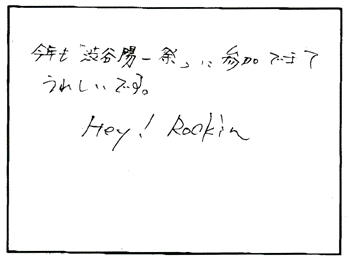 今年も「渋谷陽一祭」に参加できて
うれしいです。
Hey! Rockin